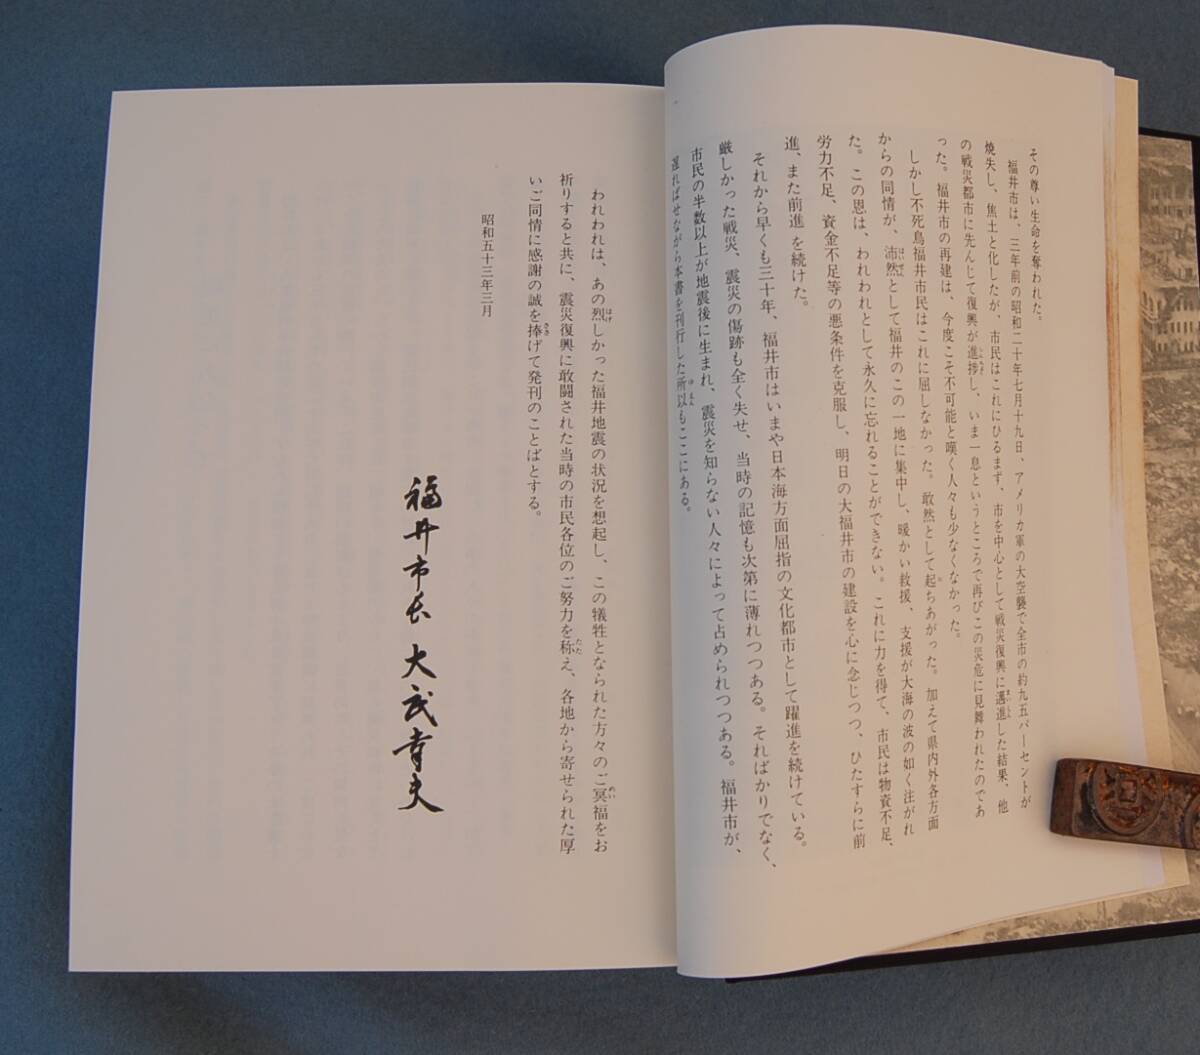 その尊い生命を奪われた。
福井市は、三年前の昭和二十年七月十九日、アメリカ軍の大空襲で全市の約九五パーセントが
焼失し、焦土と化したが、市民はこれにひるまず、市を中心として戦災復興に邁進した結果、他
の戦災都市に先んじて復興が進捗し、いま一息というところで再びこの災危に見舞われたのであ
った。福井市の再建は、今度こそ不可能と嘆く人々も少なくなかった。
しかし不死鳥福井市民はこれに屈しなかった。敢然として起ちあがった。加えて県内外各方面
からの同情が、沛然として福井のこの一地に集中し、暖かい救援、支援が大海の波の如く注がれ
た。この恩は、われわれとして永久に忘れることができない。これに力を得て、市民は物資不足、
労力不足、資金不足等の悪条件を克服し、明日の大福井市の建設を心に念じつつ、ひたすらに前
進、また前進を続けた。
それから早くも三十年、福井市はいまや日本海方面屈指の文化都市として躍進を続けている。
厳しかった戦災、震災の傷跡も全く失せ、当時の記憶も次第に薄れつつある。そればかりでなく、
市民の半数以上が地震後に生まれ、震災を知らない人々によって占められつつある。福井市が、
遅ればせながら本書を刊行した所以もここにある。
われわれは、あの烈しかった福井地震の状況を想起し、この犠牲となられた方々のご冥福をお
祈りすると共に、震災復興に敢闘された当時の市民各位のご努力を称え、各地から寄せられた厚
いご同情に感謝の誠を捧げて発刊のことばとする。
昭和五十三年三月
福井市長 大武幸夫